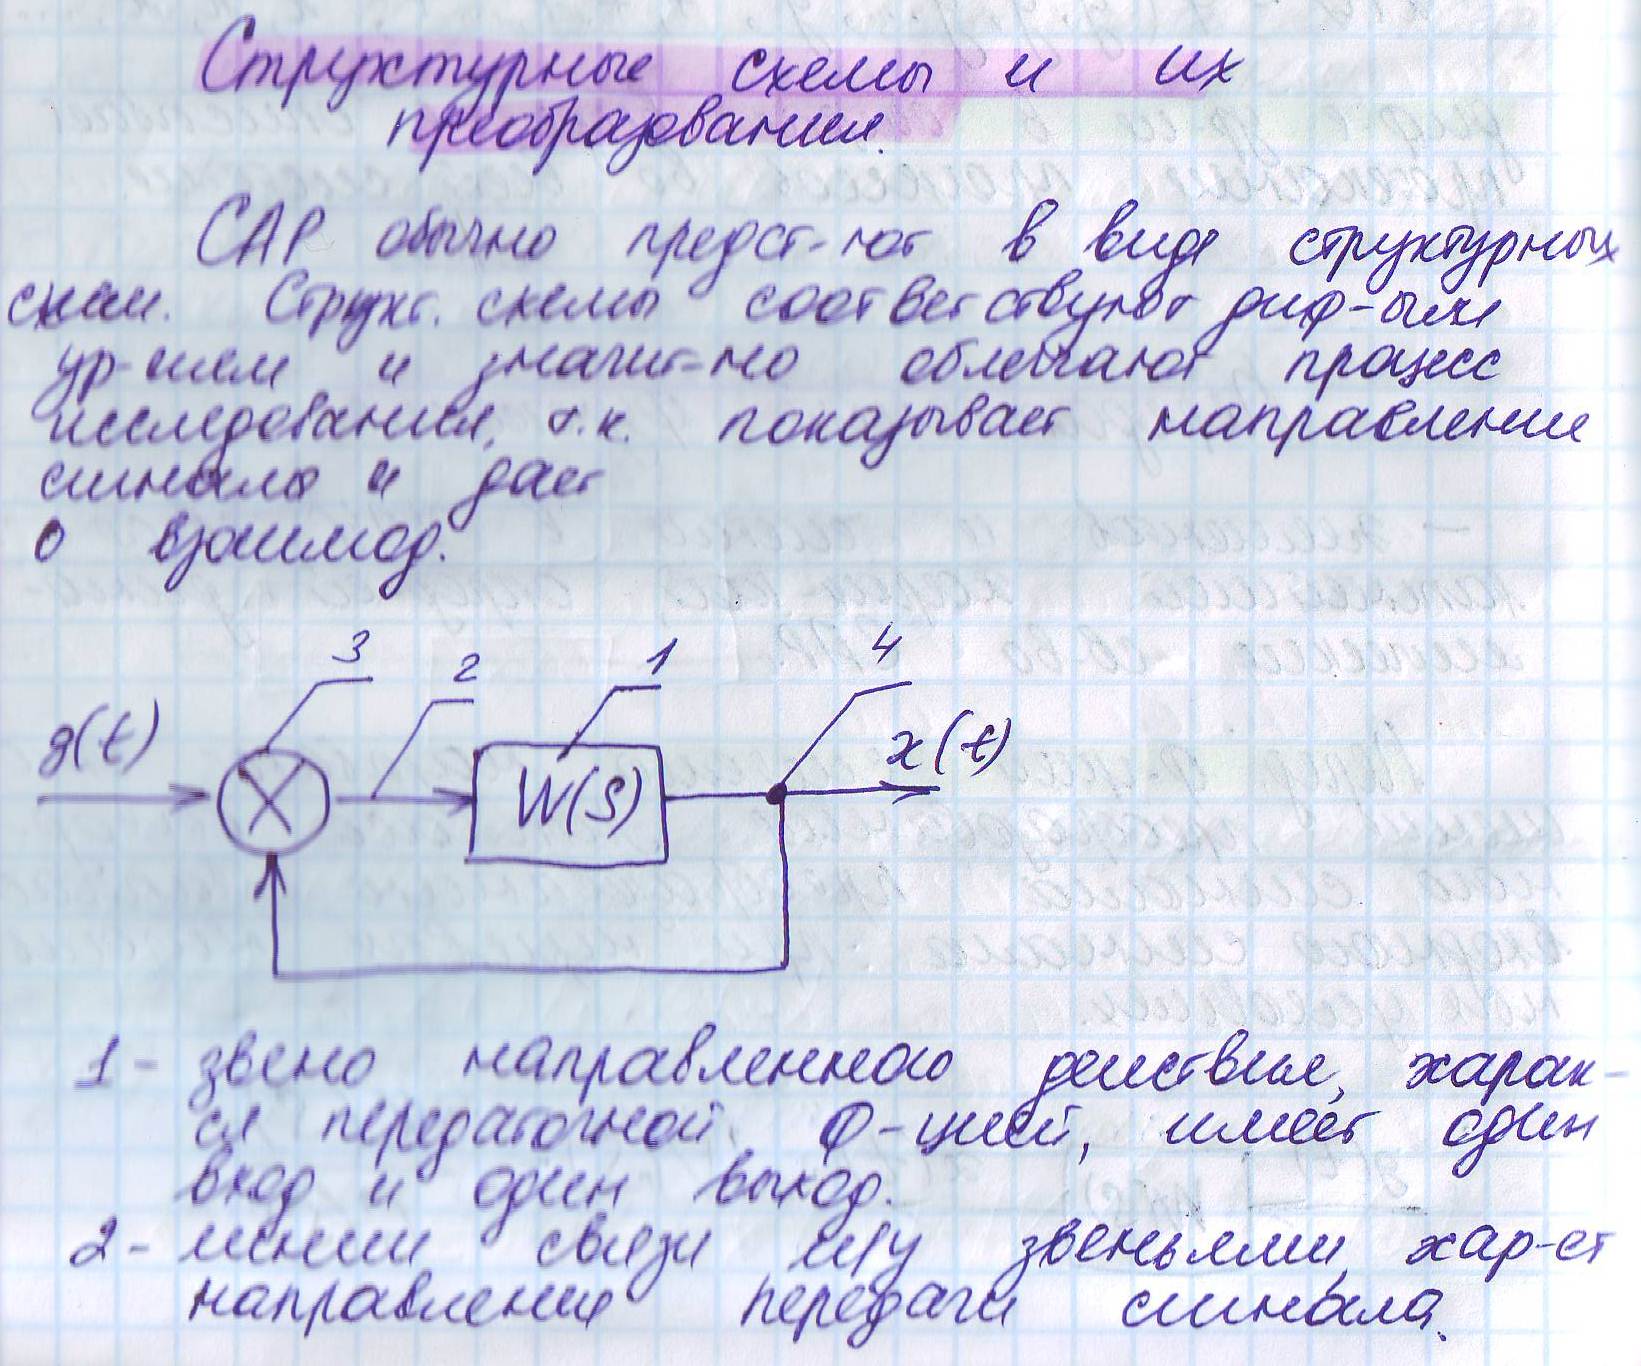 Структурные схемы и их
преобразования.
САР обычно предст-ют в виде структурных
схем. Структ. схемы соответствуют диф-ым
ур-ием и значит-но облегчают процесс
исследования, т.к. показывает направление
сигналы и дает
о взаимод.
3 2 1 4
g(t) W(S) x(t)
1 - звено направленного действия, харак-
ся передаточной ф-цией, имеет один
вход и один выход.
2 - линии связи м/у звеньями, хар-ет
направление передачи сигнала.